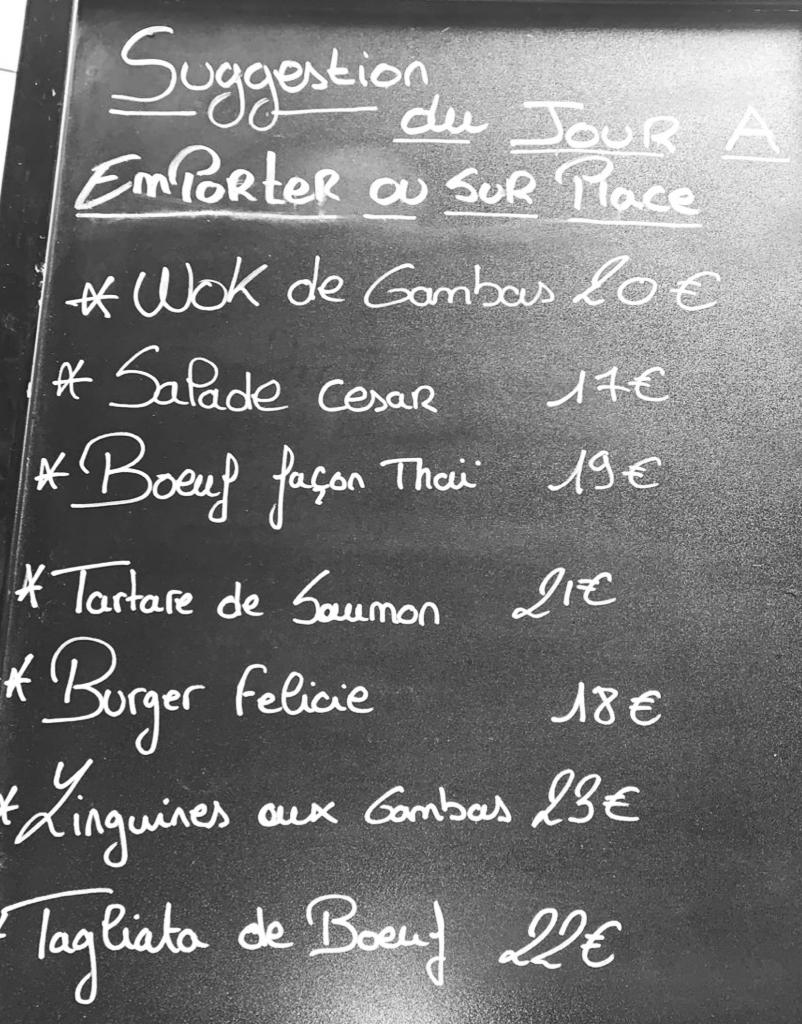 Suggestion
du Jour A
Emporter ou sur Place
* Wok de Gambas 20€
* Salade cesar 17€
* Boeuf façon Thaï 19€
* Tartare de Saumon 21€
* Burger Felicie 18€
* Linguines aux Gambas 23€
* Tagliata de Boeuf 22€